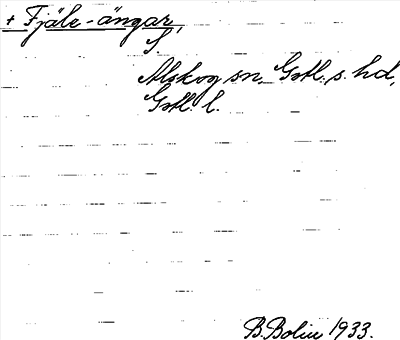 + Fjäle-ängar,
S.
Alskog sn, Gotl. s. hd,
Gotl. l.
B. Bolin 1933.